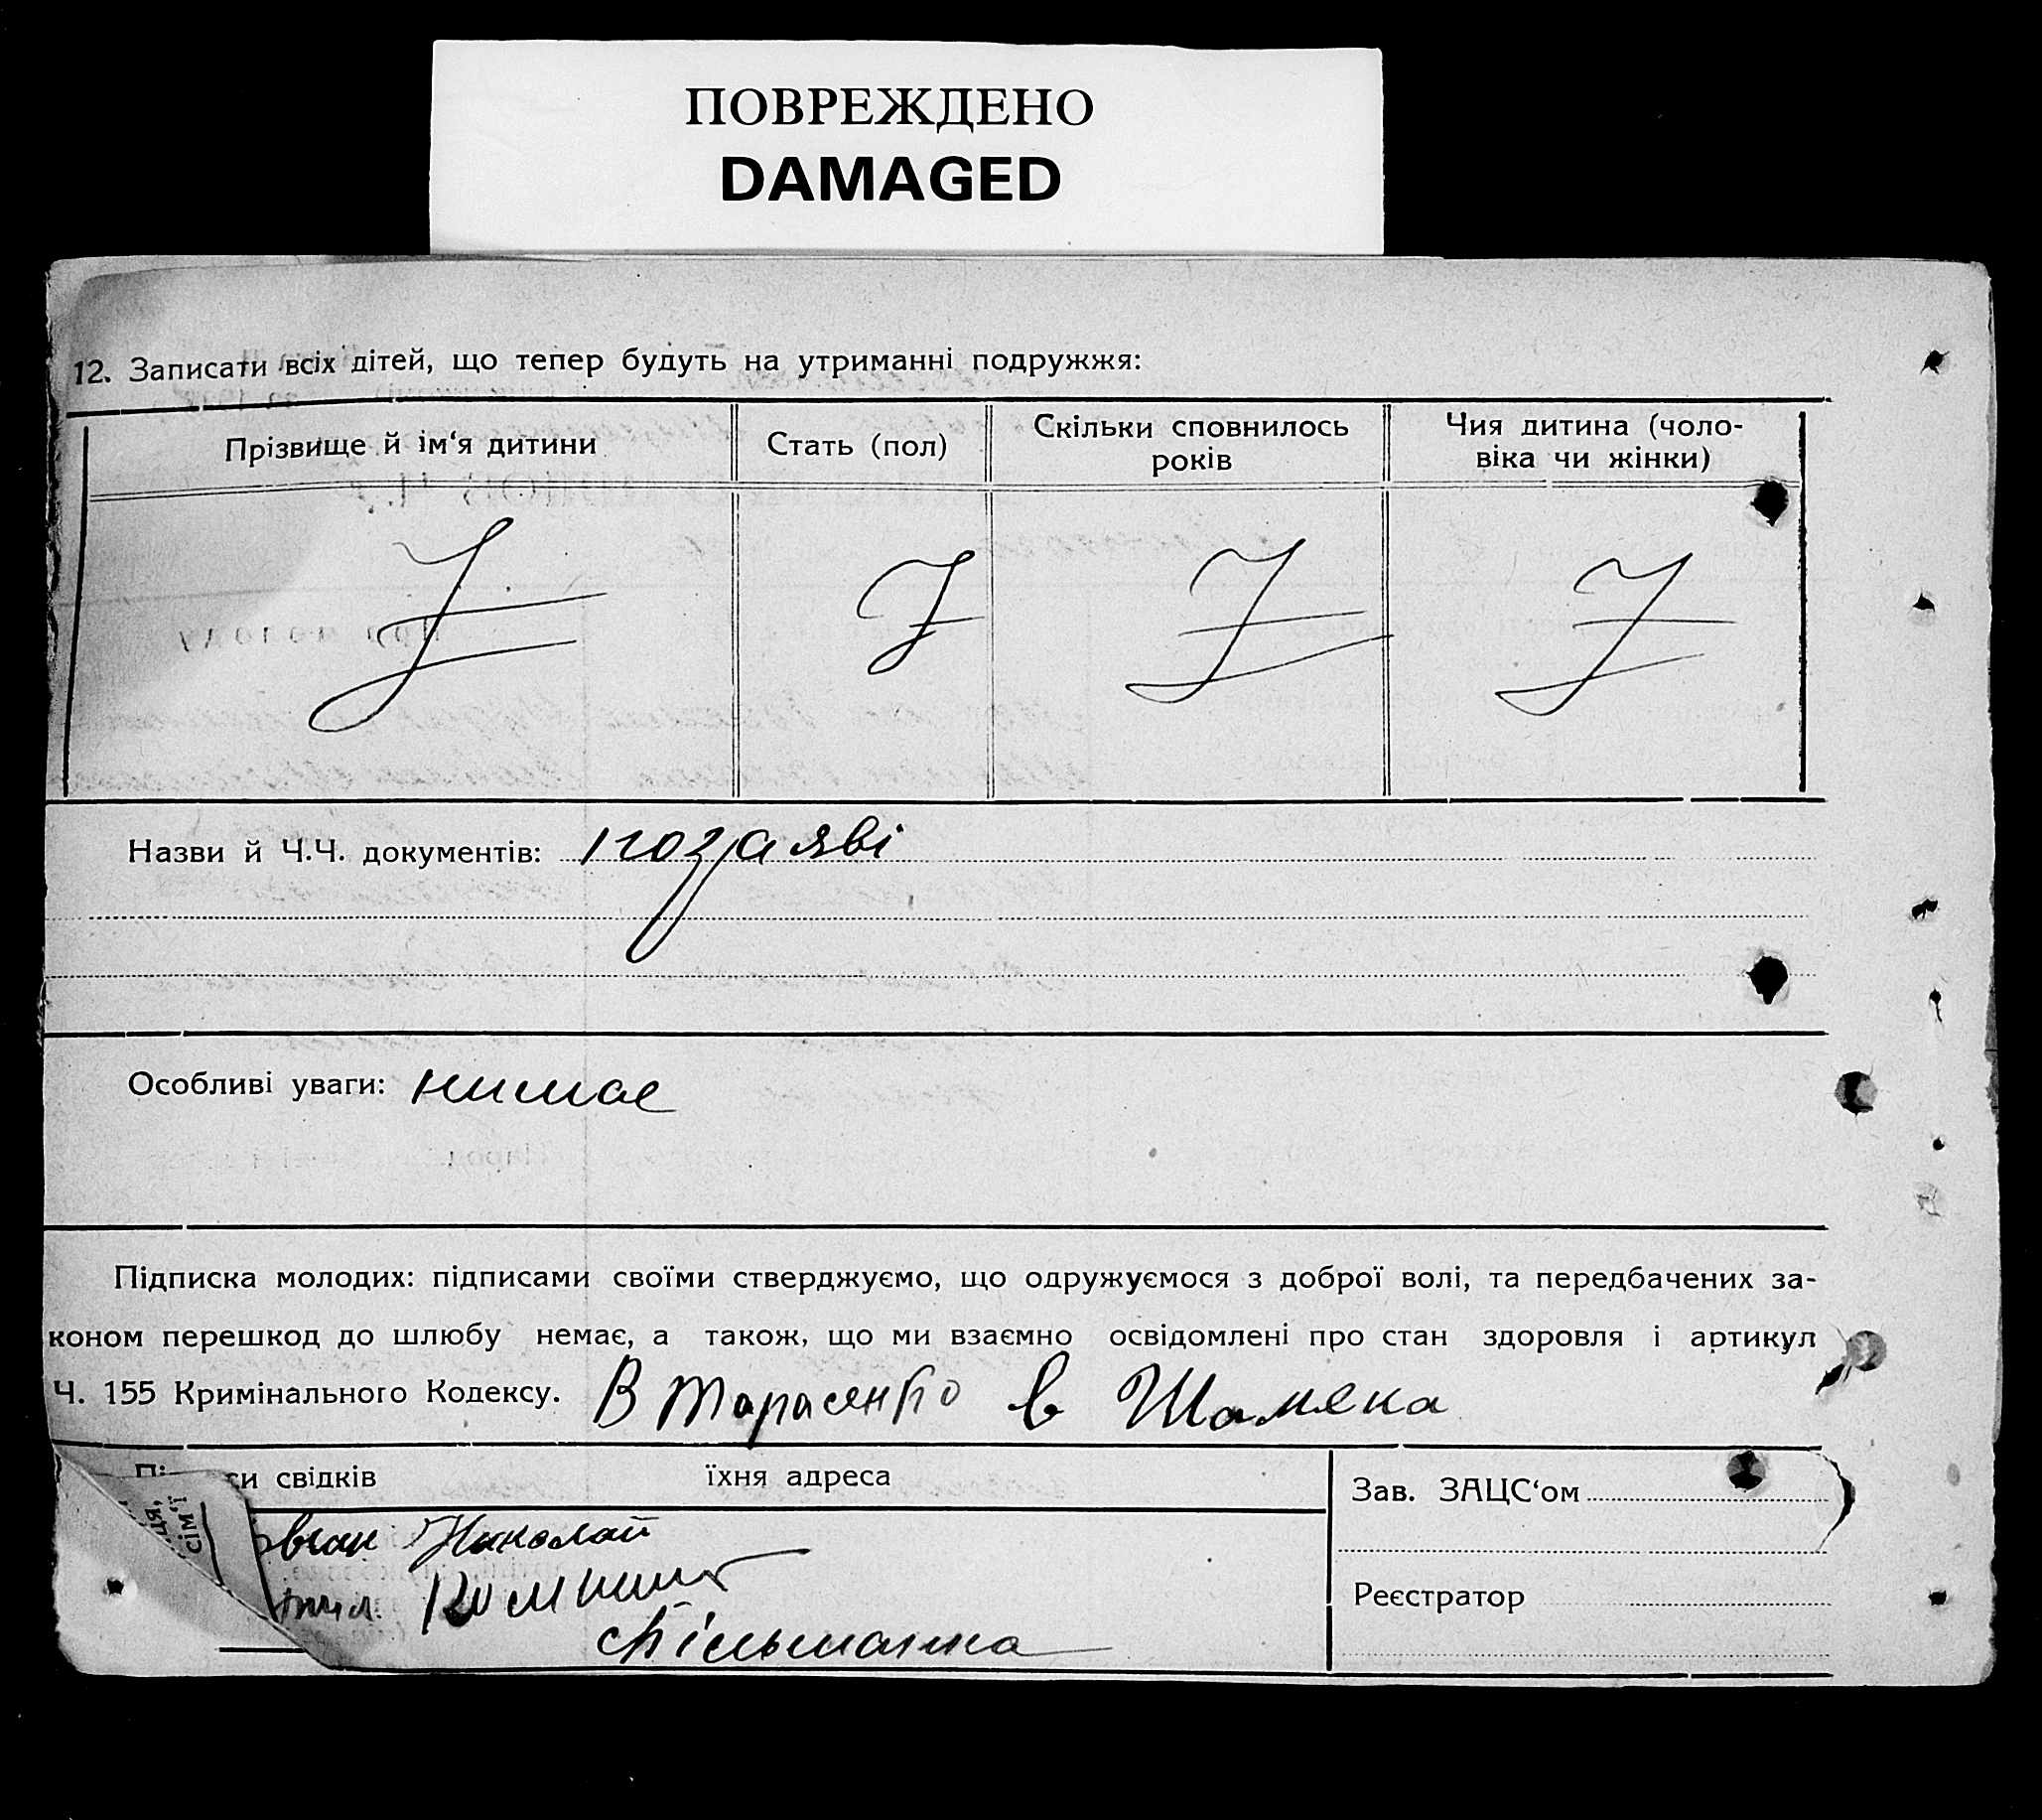 ПОВРЕЖДЕНО
DAMAGED
12. Записати всіх дітей, що тепер будуть на утриманні подружжя:
Прізвище й ім‘я дитини
Стать (пол)
Скільки сповнилось років
Чия дитина (чоло-
віка чи жінки)
Назви й Ч.Ч. документів: по заяві
Особливі уваги: нимає
Підписка молодих: підписами своїми стверджуємо, що одружуємося з доброї волі, та передбачених за-
коном перешкод до шлюбу немає, а також, що ми взаємно освідомлені про стан здоровля і артикул
Ч. 155 Кримінального Кодексу. В Тарасенко в Шамека
си свідків їхня адреса
Зав. ЗАЦС‘ом
Николай
Реєстратор
сім‘ї